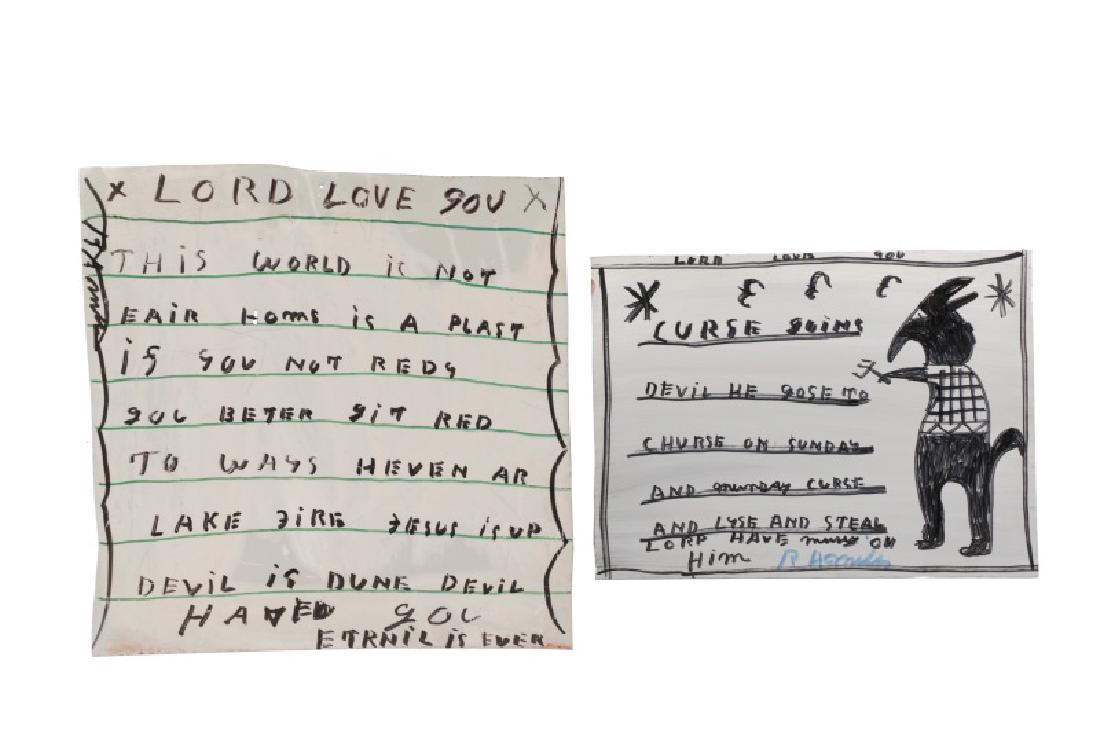 X LORD LOVE YOU X
THIS WORLD iS NOT
FAIR HOME iS A PLAST
iS YOU NOT REDY
YOU BETER GiT RED
TO WAYS HEVEN AR
LAKE FiRE JESUS iS UP
DEVIL iS DUNE DEVIL
HATED YOU
ETRNiL iS EVER
LORD LOVE YOU
CURSE GOiNS
DEVIL HE GOSE TO
CHURSE ON SUNDAY
AND MUNDAY CURSE
AND LYSE AND STEAL
LORD HAVE ON
HiM